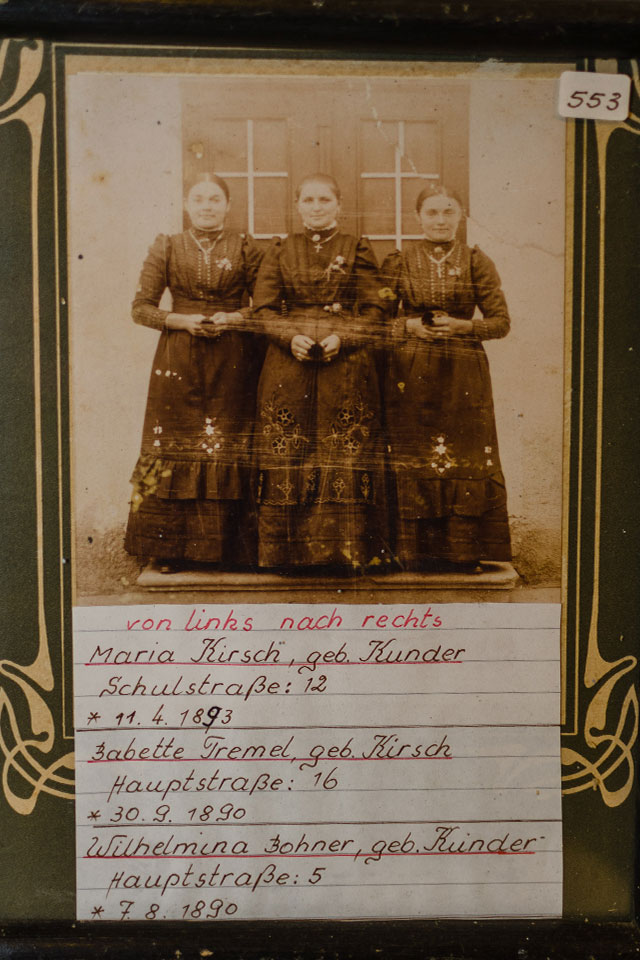 553
von links nach rechts
Maria Kirsch, geb. Kunder
Schulstraße: 12
* 11. 4. 1893
Babette Tremel, geb. Kirsch
Hauptstraße: 16
* 30. 9. 1890
Wilhelmina Bohner, geb. Kunder
Hauptstraße: 5
* 7. 8. 1890